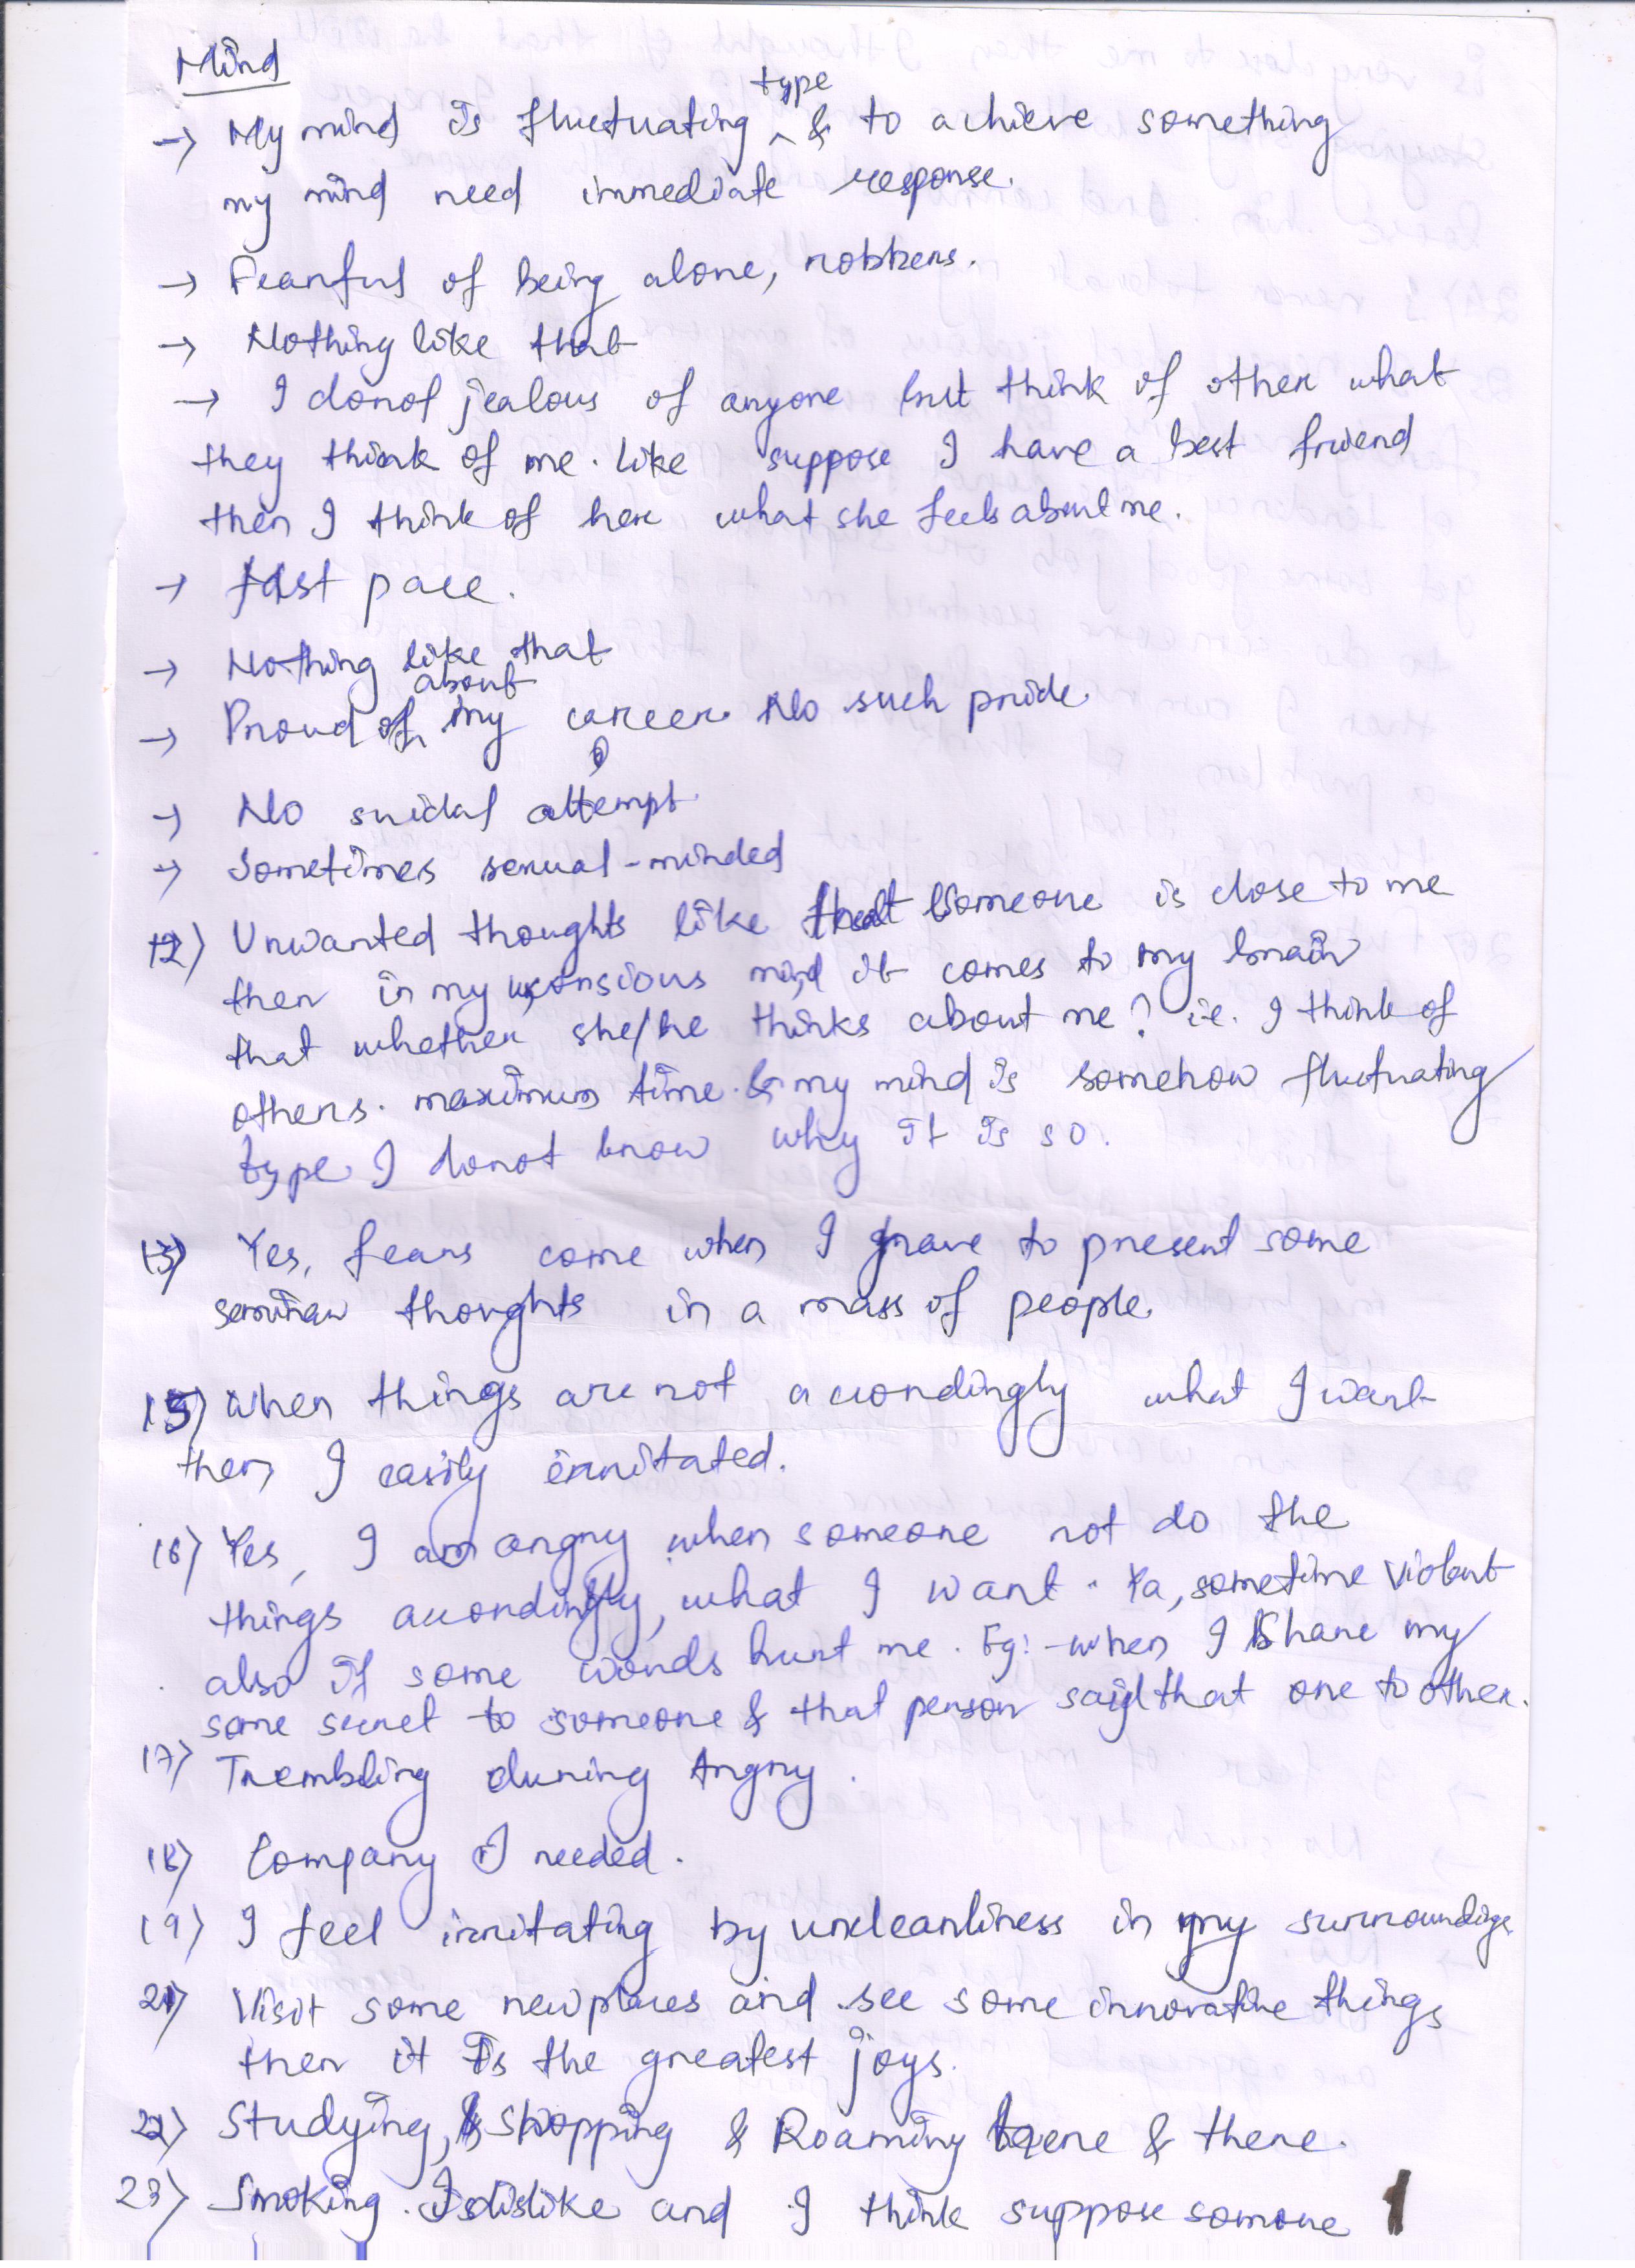 Mind
→ My mind is fluctuating type & to achieve something
my mind need immediate response.
→ Fearful of being alone, robbers.
→ Nothing like that
→ I donot jealous of anyone but think of other what
they think of me. like suppose I have a best friend
then I think of her what she feels about me.
→ fast pace.
→ Nothing like that
→ Proud of about my career. No such pride.
→ No suidal attempt.
→ Sometimes sexual-minded
12) Unwanted thoughts like that someone is close to me
then in my unconsious mind it comes to my brain
that whether she/he thinks about me? i.e. I think of
others. maximum time. & my mind is somehow fluctuating
type I donot know why it is so.
13) Yes, fears come when I have to present some
seminar thoughts in a mass of people.
15) When things are not accordingly what I want
then I easily irritated.
16) Yes, I am angry when someone not do the
things accordingly, what I want. Ya, sometime violent
also if some words hurt me. Eg:- when I share my
some secret to someone & that person said that one to other.
17) Trembling during Angry.
18) Company I needed.
19) I feel irritating by uncleanliness in my surroundings
21) Visit some new places and see some innovative things
then it is the greatest joys.
22) Studying, & shopping & Roaming here & there.
23) Smoking. I dislike and I think suppose somone
1